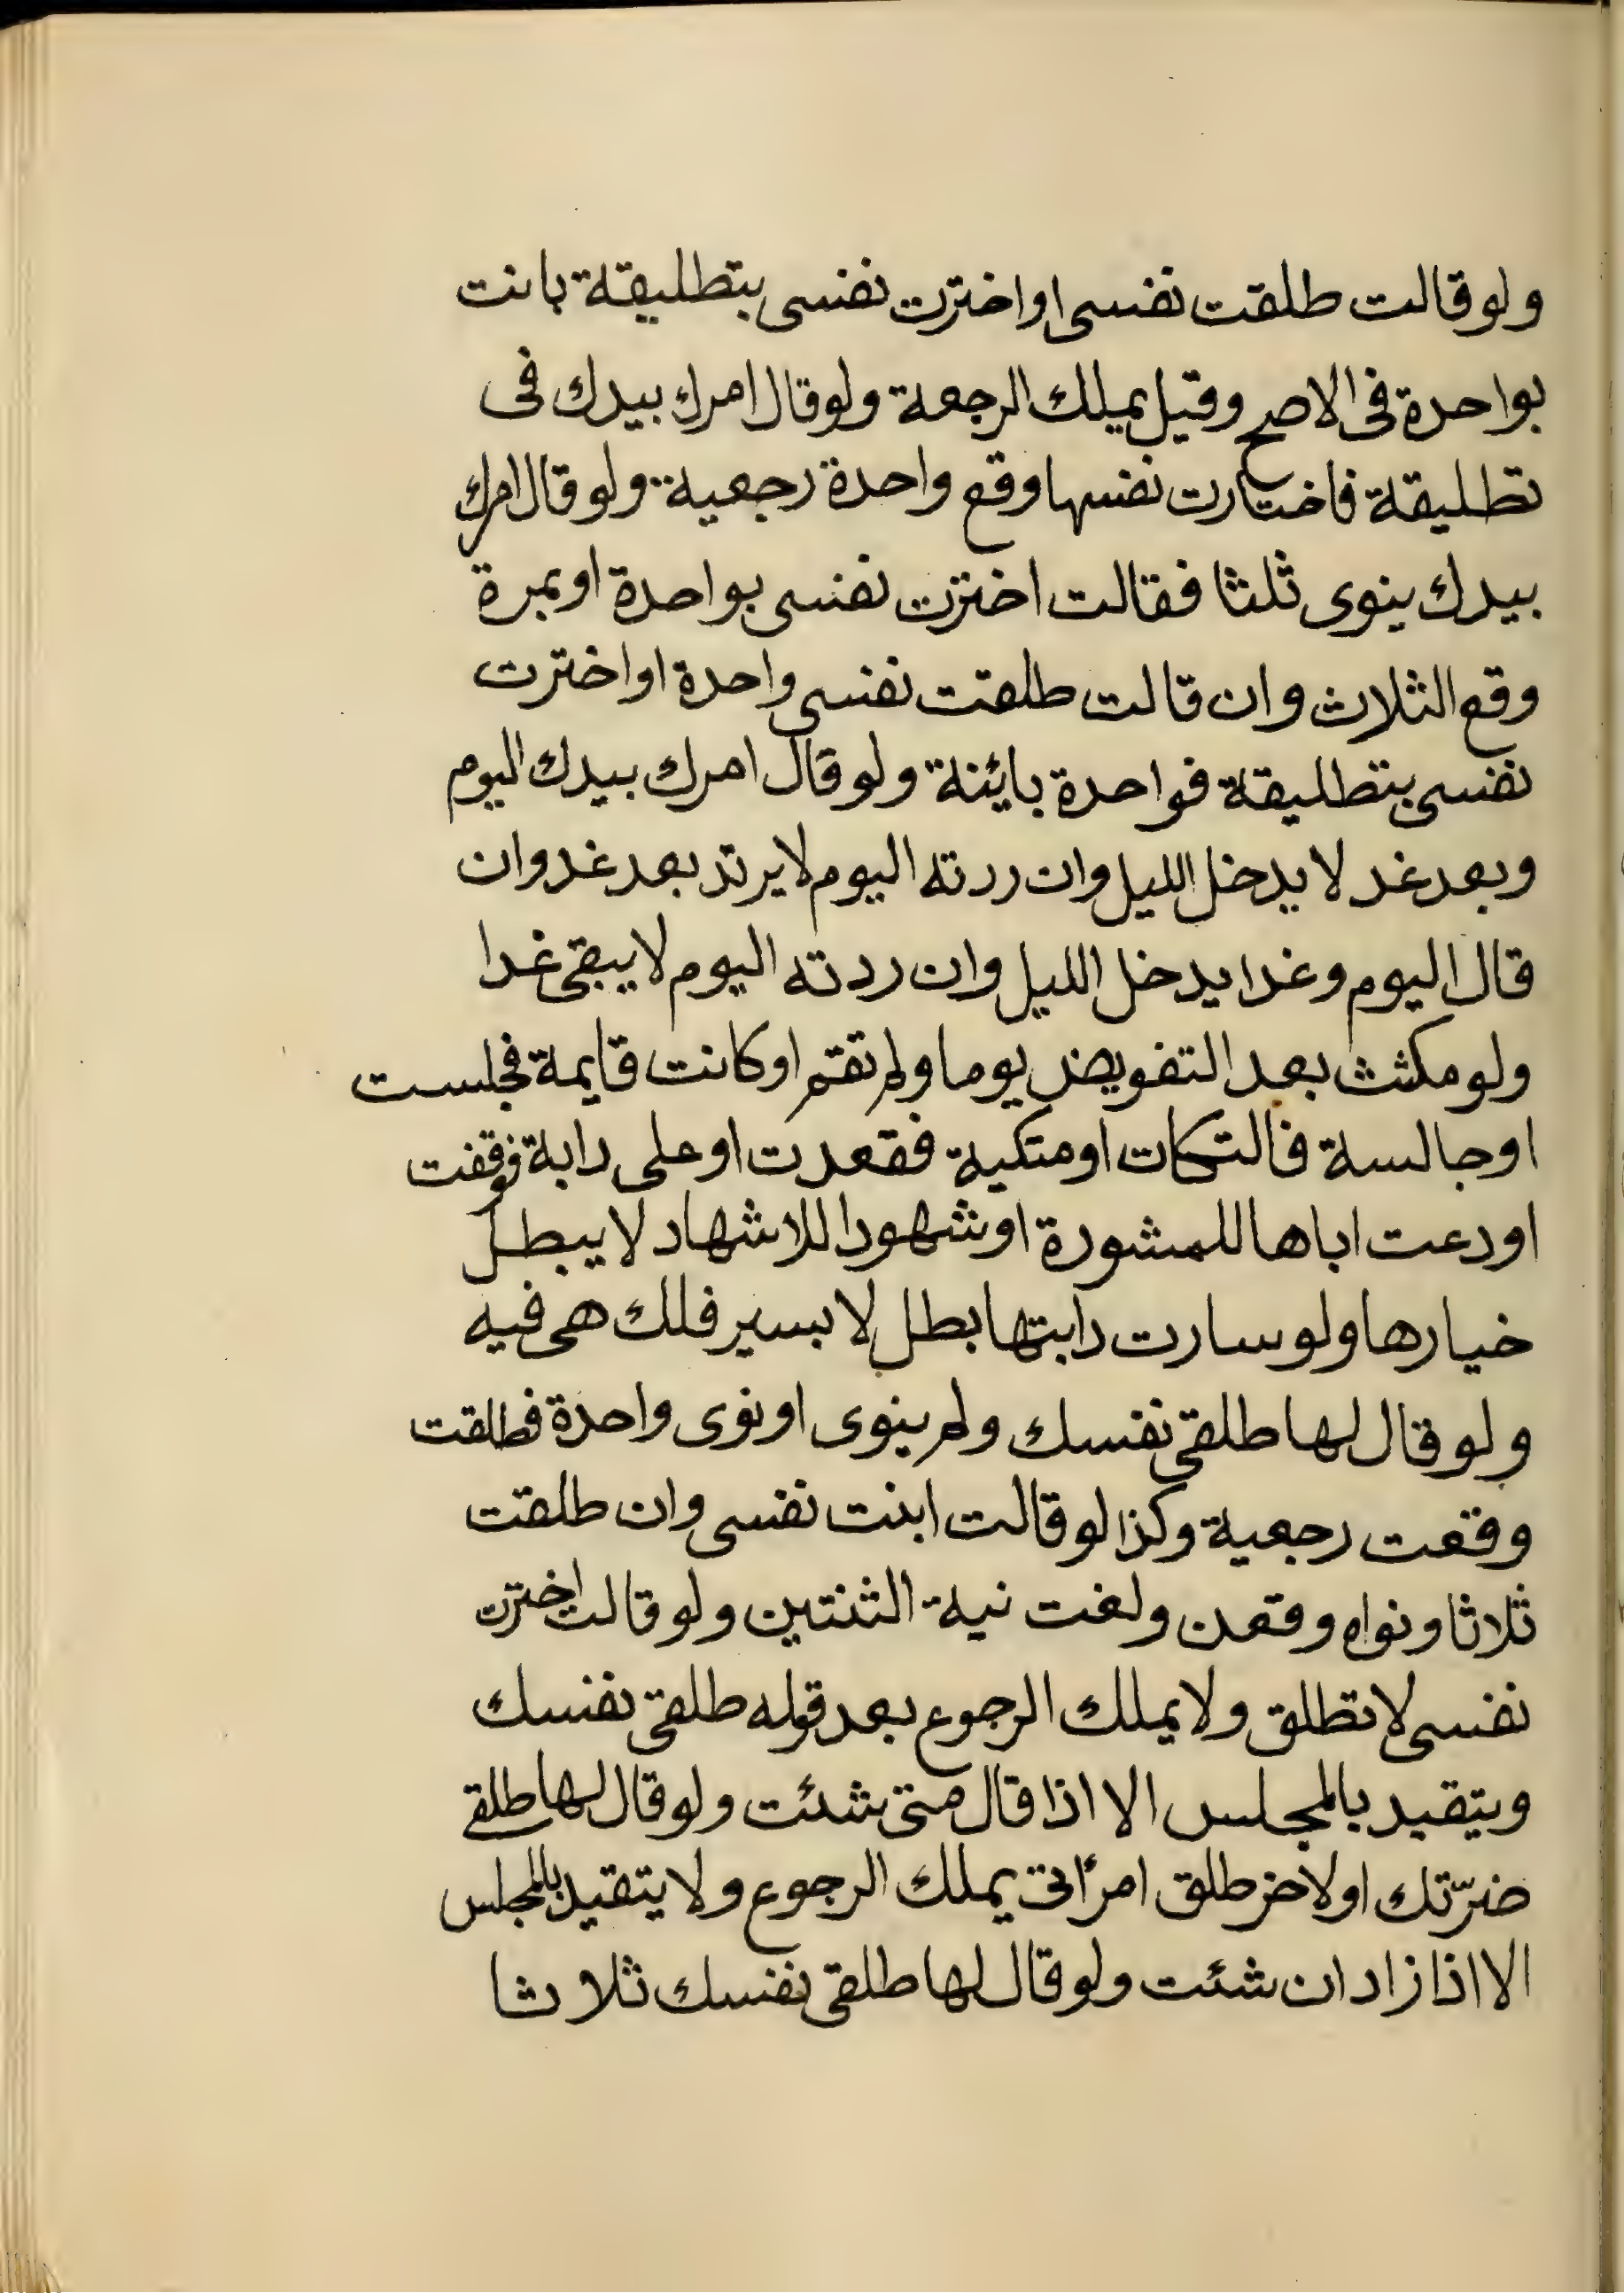 ولو قالت طلقت نفسى او اخترت نفسى بتطليقة بانت
بواحدة فى الاصح وقيل يملك الرجعة ولو قال امرك بيدك فى
تطليقة فاختارت نفسها وقع واحدة رجعية ولو قال امرك
بيدك ينوى ثلثا فقالت اخترت نفسى بواحدة او بمرة
وقع الثلاث وان قالت طلقت نفسى واحدة او اخترت
نفسى بتطليقة فواحدة بايئنة ولو قال امرك بيدك اليوم
وبعد غد لا يدخل الليل وان ردته اليوم لا يرتد بعد غد وان
قال اليوم وغدا يدخل الليل وان ردته اليوم لا يبقى غدا
ولو مكثت بعد التفويض يوما ولم تقم او كانت قايمة فجلست
او جالسة فالتكات او متكية فقعدت او على دابة فوقفت
او دعت اباها للمشورة او شهودا للاشهاد لا يبطل
خيارها ولو سارت دابتها بطل لا بسير فلك هى فيه
ولو قال لها طلقى نفسك ولم ينوى او نوى واحدة فطلقت
وقعت رجعية وكذا لو قالت ابنت نفسى وان طلقت
ثلاثا ونواه وقعن ولغت نية الثنتين ولو قالت اخترت
نفسى لا تطلق ولا يملك الرجوع بعد قوله طلقى نفسك
ويتقيد بالمجلس الا اذا قال متى شئت ولو قال لها طلقى
ضرّتك او لاخر طلق امرأتى يملك الرجوع ولا يتقيد بالمجلس
الا اذا زاد ان شئت ولو قال لها طلقى نفسك ثلاثا